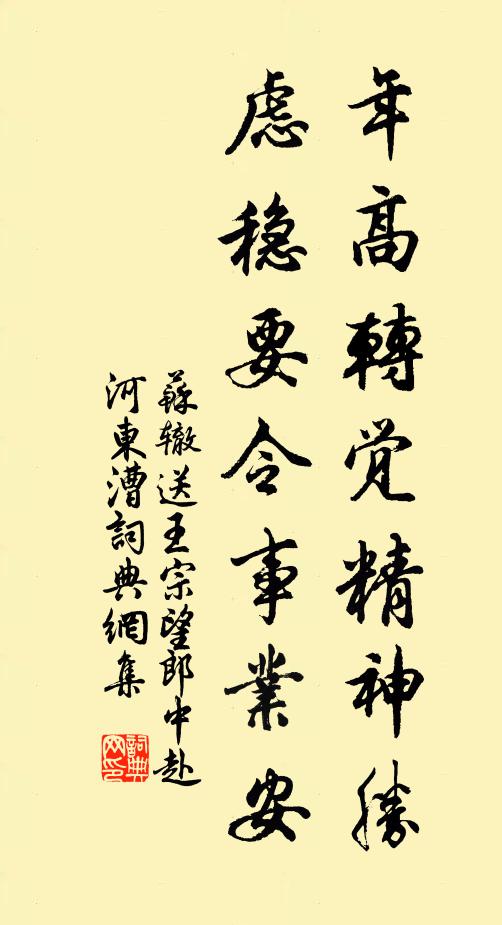 年高轉觉精神勝
慮稳要令事業安
蘇辙送王宗望郎中赴
河東漕詞典網集
詞典
网印